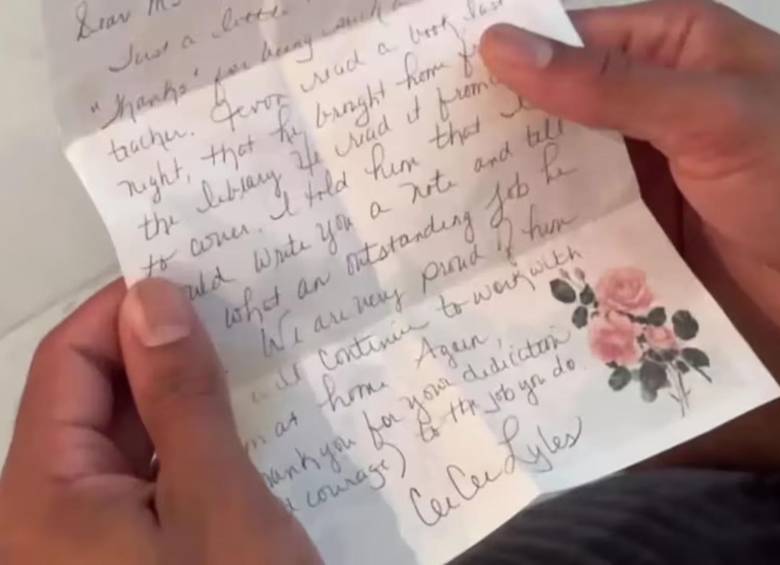 Dear Ms
Just a little
"Thanks" for being such a
teacher. Jevon read a book last
night, that he brought home from
the library. He read it from
to cover. I told him that I
would write you a note and tell
what an outstanding job he
We are very proud of him
will continue to work with
at home. Again,
thank you for your dedication
courage) to the job you do.
CeeCee Lyles